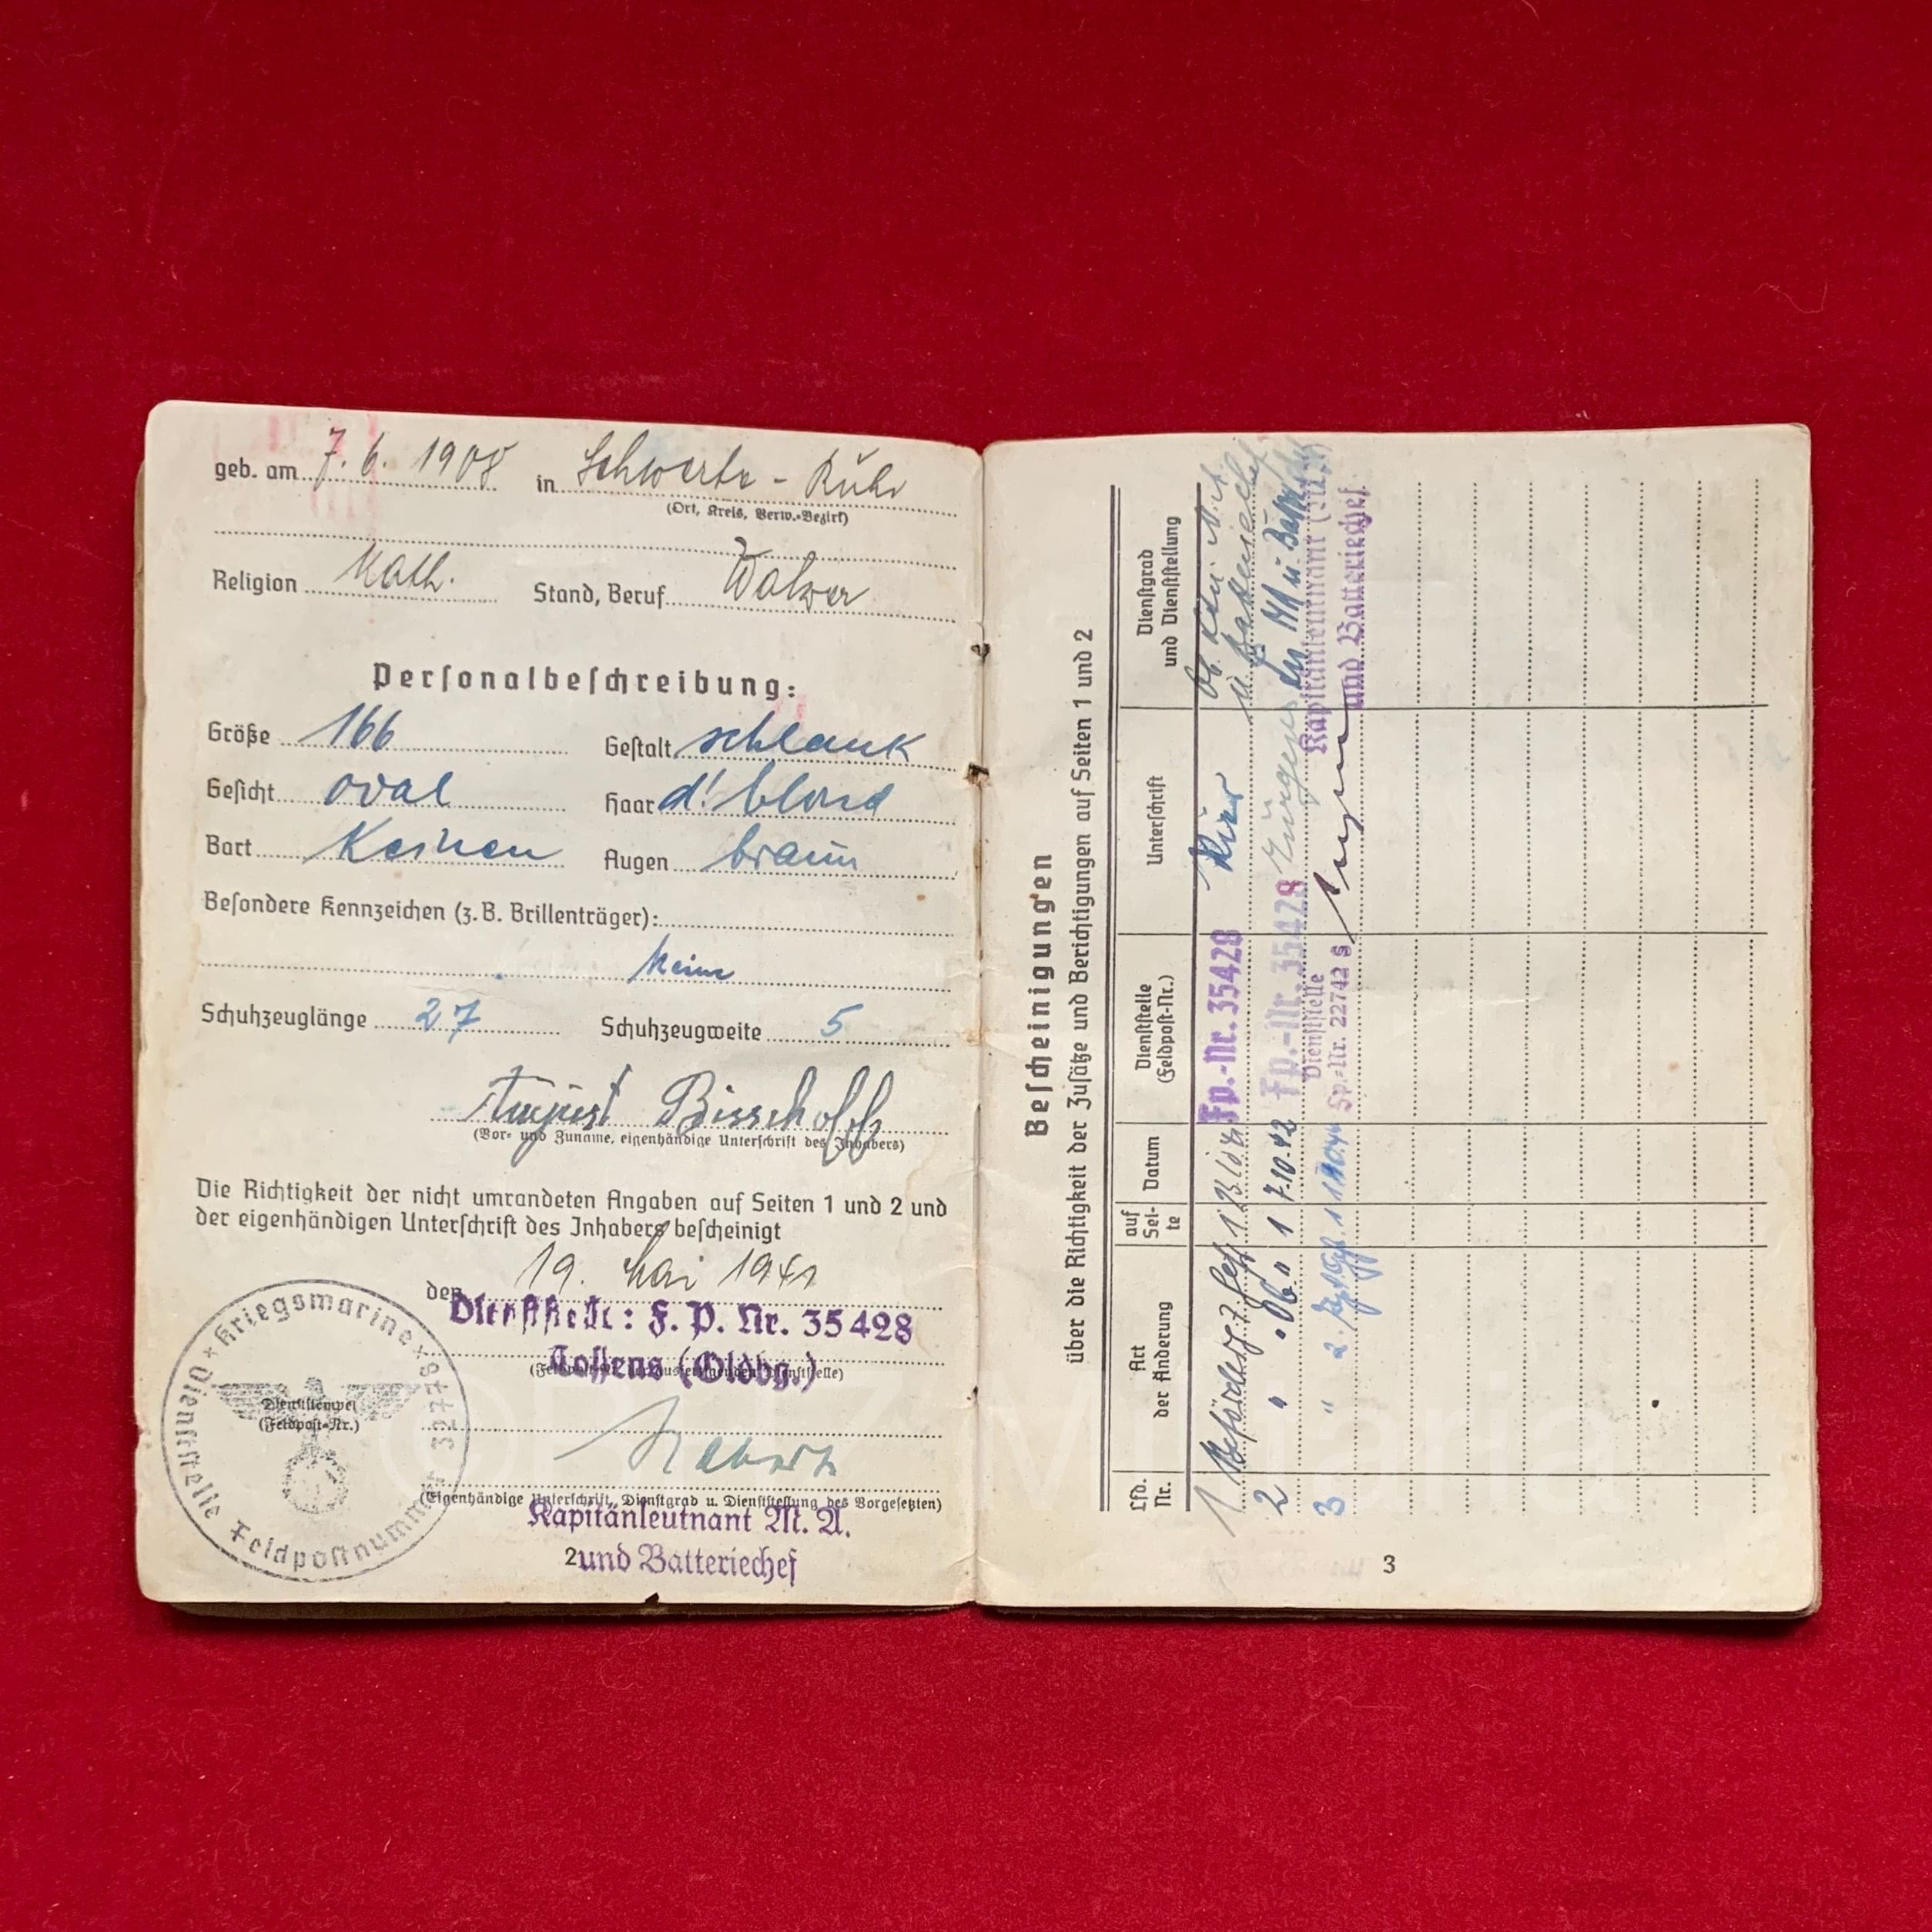 geb. am 7. 6. 1908 in Schwerte - Ruhr
(Ort, Kreis, Verw.=Bezirk)
Religion Kath. Stand, Beruf Walzer
Personalbeschreibung:
Größe 166 Gestalt schlank
Gesicht oval Haar d! blond
Bart Keinen Augen braun
Besondere Kennzeichen (z. B. Brillenträger):
Keine
Schuhzeuglänge 27 Schuhzeugweite 5
August Bisschoff
(Vor= und Zuname, eigenhändige Unterschrift des Inhabers)
Die Richtigkeit der nicht umrandeten Angaben auf Seiten 1 und 2 und
der eigenhändigen Unterschrift des Inhabers bescheinigt
den 19. Mai 1941
Dienststelle: F. P. Nr. 35428
Tossens (Oldbg.)
Kriegsmarine
Dienststelle Feldpostnummer
Dienststempel
(Feldpost=Nr.)
(Eigenhändige Unterschrift, Dienstgrad u. Dienststellung des Vorgesetzten)
Kapitänleutnant M. A.
und Batteriechef
2
Bescheinigungen
über die Richtigkeit der Zusätze und Berichtigungen auf Seiten 1 und 2
Lfd. Nr. Art der Änderung auf Sei- te Datum Dienststelle (Feldpost=Nr.) Unterschrift Dienstgrad und Dienststellung
1 Beförderg. z. Gefr. 1 Fp.-Nr. 35428
2 " " Ob. " 1 7.10.42 Fp.-Nr. 35428 Jürgens
3 " 2. 1 Dienststelle Fp.=Nr. 22742 Kapitänleutnant und Batteriechef
3